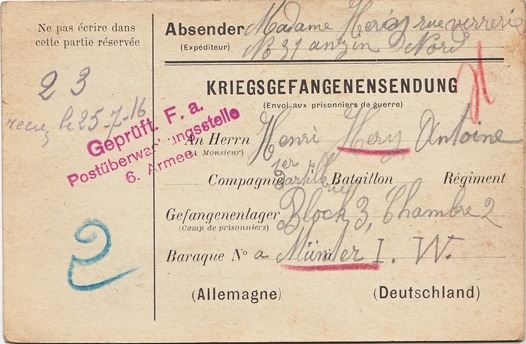 Ne pas écrire dans
cette partie réservée
2 3
reçu le 25-7-16
Geprüft. F. a.
Postüberwachungsstelle
6. Armee.
2
Absender Madame Hery rue verrerie
(Expéditeur) N 31 anzin Nord
KRIEGSGEFANGENENSENDUNG
(Envoi aux prisonniers de guerre)
An Herrn Henri Hery Antoine
(A Monsieur)
1er
Compagnie Bataillon Régiment
Gefangenenlager Block 3, Chambre 2
(Camp de prisonniers)
Baraque No a Münster I. W.
(Allemagne) (Deutschland)